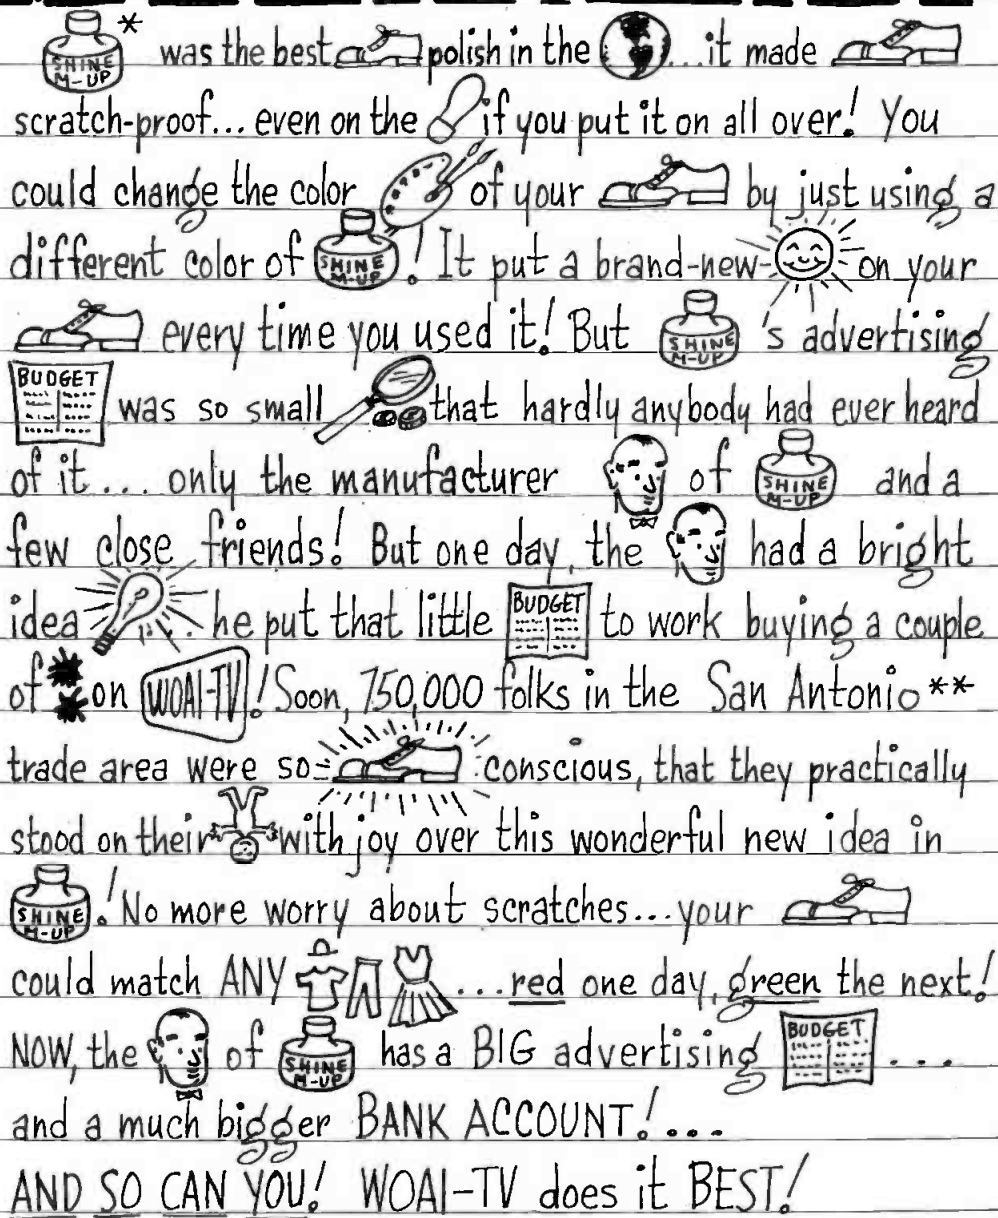 SHINE M-UP * was the best polish in the ...it made
scratch-proof... even on the if you put it on all over! You
could change the color of your by just using a
different color of SHINE M-UP ! It put a brand-new on your
every time you used it! But SHINE M-UP 's advertising
BUDGET was so small that hardly anybody had ever heard
of it... only the manufacturer of SHINE M-UP and a
few close friends! But one day, the had a bright
idea he put that little BUDGET to work buying a couple
of on WOAI-TV! Soon, 750,000 folks in the San Antonio**
trade area were so conscious, that they practically
stood on their with joy over this wonderful new idea in
SHINE M-UP ! No more worry about scratches... your
could match ANY ...red one day, green the next!
NOW, the of SHINE M-UP has a BIG advertising BUDGET ...
and a much bigger BANK ACCOUNT!...
AND SO CAN YOU! WOAI-TV does it BEST!